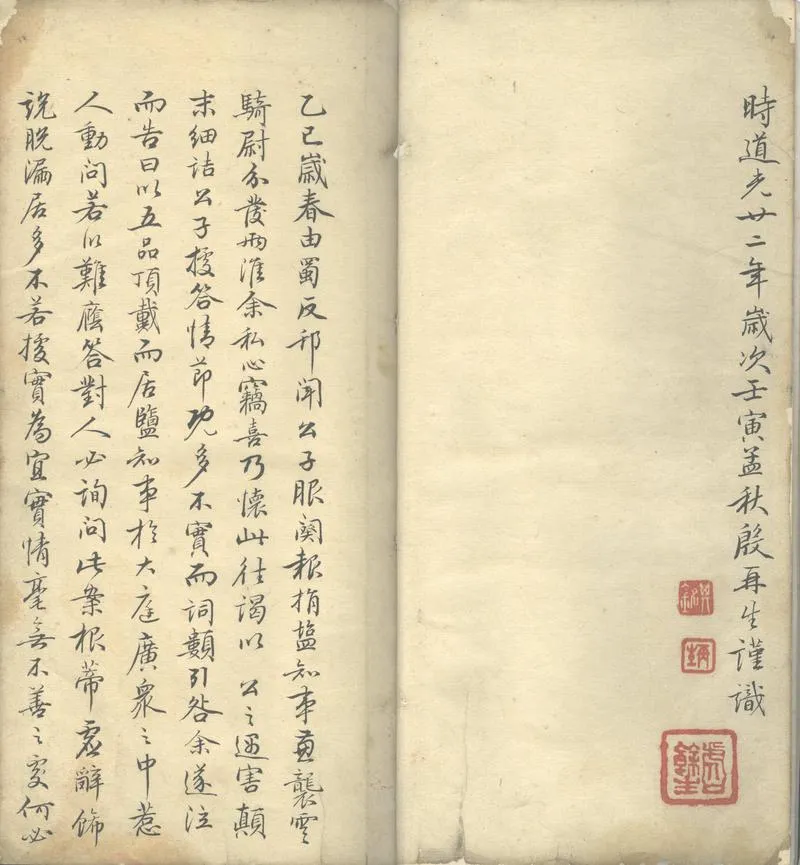 時道光廿二年歲次壬寅孟秋殷再生謹識
再生
虎口餘生
乙巳歲春由蜀反邗聞公子服闋報捐鹽知事兼襲雲
騎尉分發兩淮余私心竊喜乃懷此往謁以公之遇害顛
末細詰公子據答情節既多不實而詞類引咎余遂注
而告曰以五品頂戴而居鹽知事於大庭廣衆之中惹
人動問若以難應答對人必詢問此案根蒂虛辭飾
說脫漏居多不若據實為宜實情毫無不善之處何必